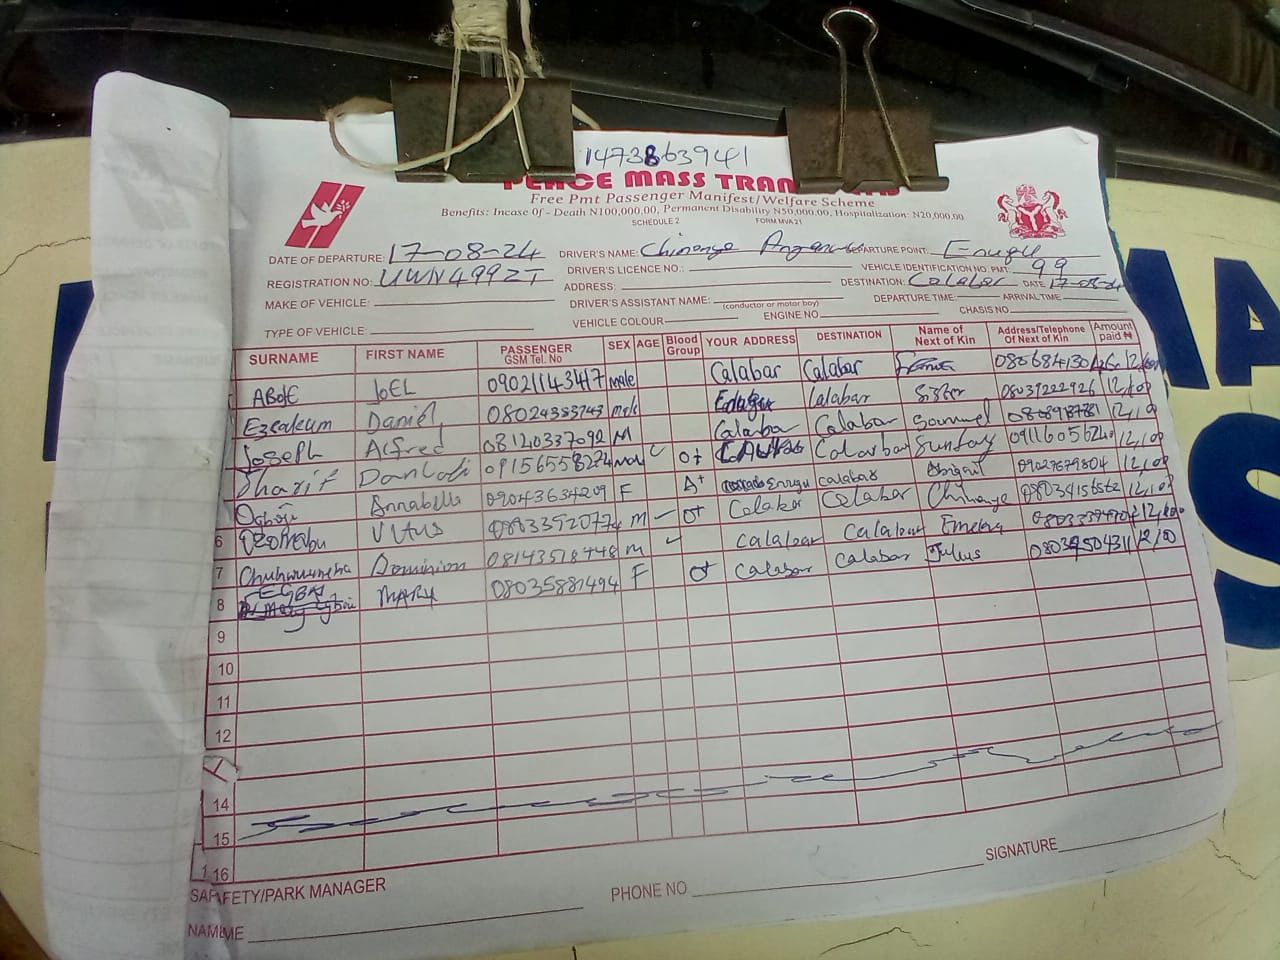 1473863941
PEACE MASS TRAN
Free Pmt Passenger Manifest/Welfare Scheme
Benefits: Incase Of - Death N100,000.00, Permanent Disability N50,000.00, Hospitalization: N20,000.00
SCHEDULE 2 FORM MVA 21
DATE OF DEPARTURE: 17-08-24 DRIVER'S NAME: Chinenye DEPARTURE POINT: Enugu
REGISTRATION NO: UWN499ZT DRIVER'S LICENCE NO.: VEHICLE IDENTIFICATION NO. PMT: 99
MAKE OF VEHICLE: ADDRESS: DESTINATION: Calabar DATE 17-08-24
TYPE OF VEHICLE: DRIVER'S ASSISTANT NAME: (conductor or motor boy) DEPARTURE TIME: ARRIVAL TIME
VEHICLE COLOUR ENGINE NO CHASIS NO
SURNAME FIRST NAME PASSENGER GSM Tel. No SEX AGE Blood Group YOUR ADDRESS DESTINATION Name of Next of Kin Address/Telephone Of Next of Kin Amount paid ₦
ABOJE JOEL 09021143417 male Calabar Calabar
Ezealeum Daniel 08024383743 male Calabar Sister 08039222926
Joseph Alfred 08120337092 M Calabar Calabar Samuel
Sharif Danladi 09156558274 O+ Calabar Sunday
Ogboji Annabella 09043634209 F A+ Enugu calabar Abigail 09027679804
6 Vitus M O+ Calabar Calabar Chinenye 08034156562
7 Chukwuemeka Dominion 08143518448 M Calabar Calabar Emeka
8 EGBAI MARY 08035881494 F O+ Calabar Calabar Julius 08037504311
9
10
11
12
14
15
16
SAFETY/PARK MANAGER PHONE NO SIGNATURE
NAME